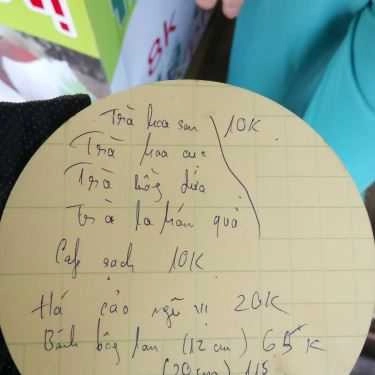 Trà hoa sen 10K
Trà hoa cúc
Trà hồng dứa
Trà la hán quả
Cafe sạch 10K
Há cảo ngũ vị 20K
Bánh bông lan (12 cm) 65K
(20 cm) 115